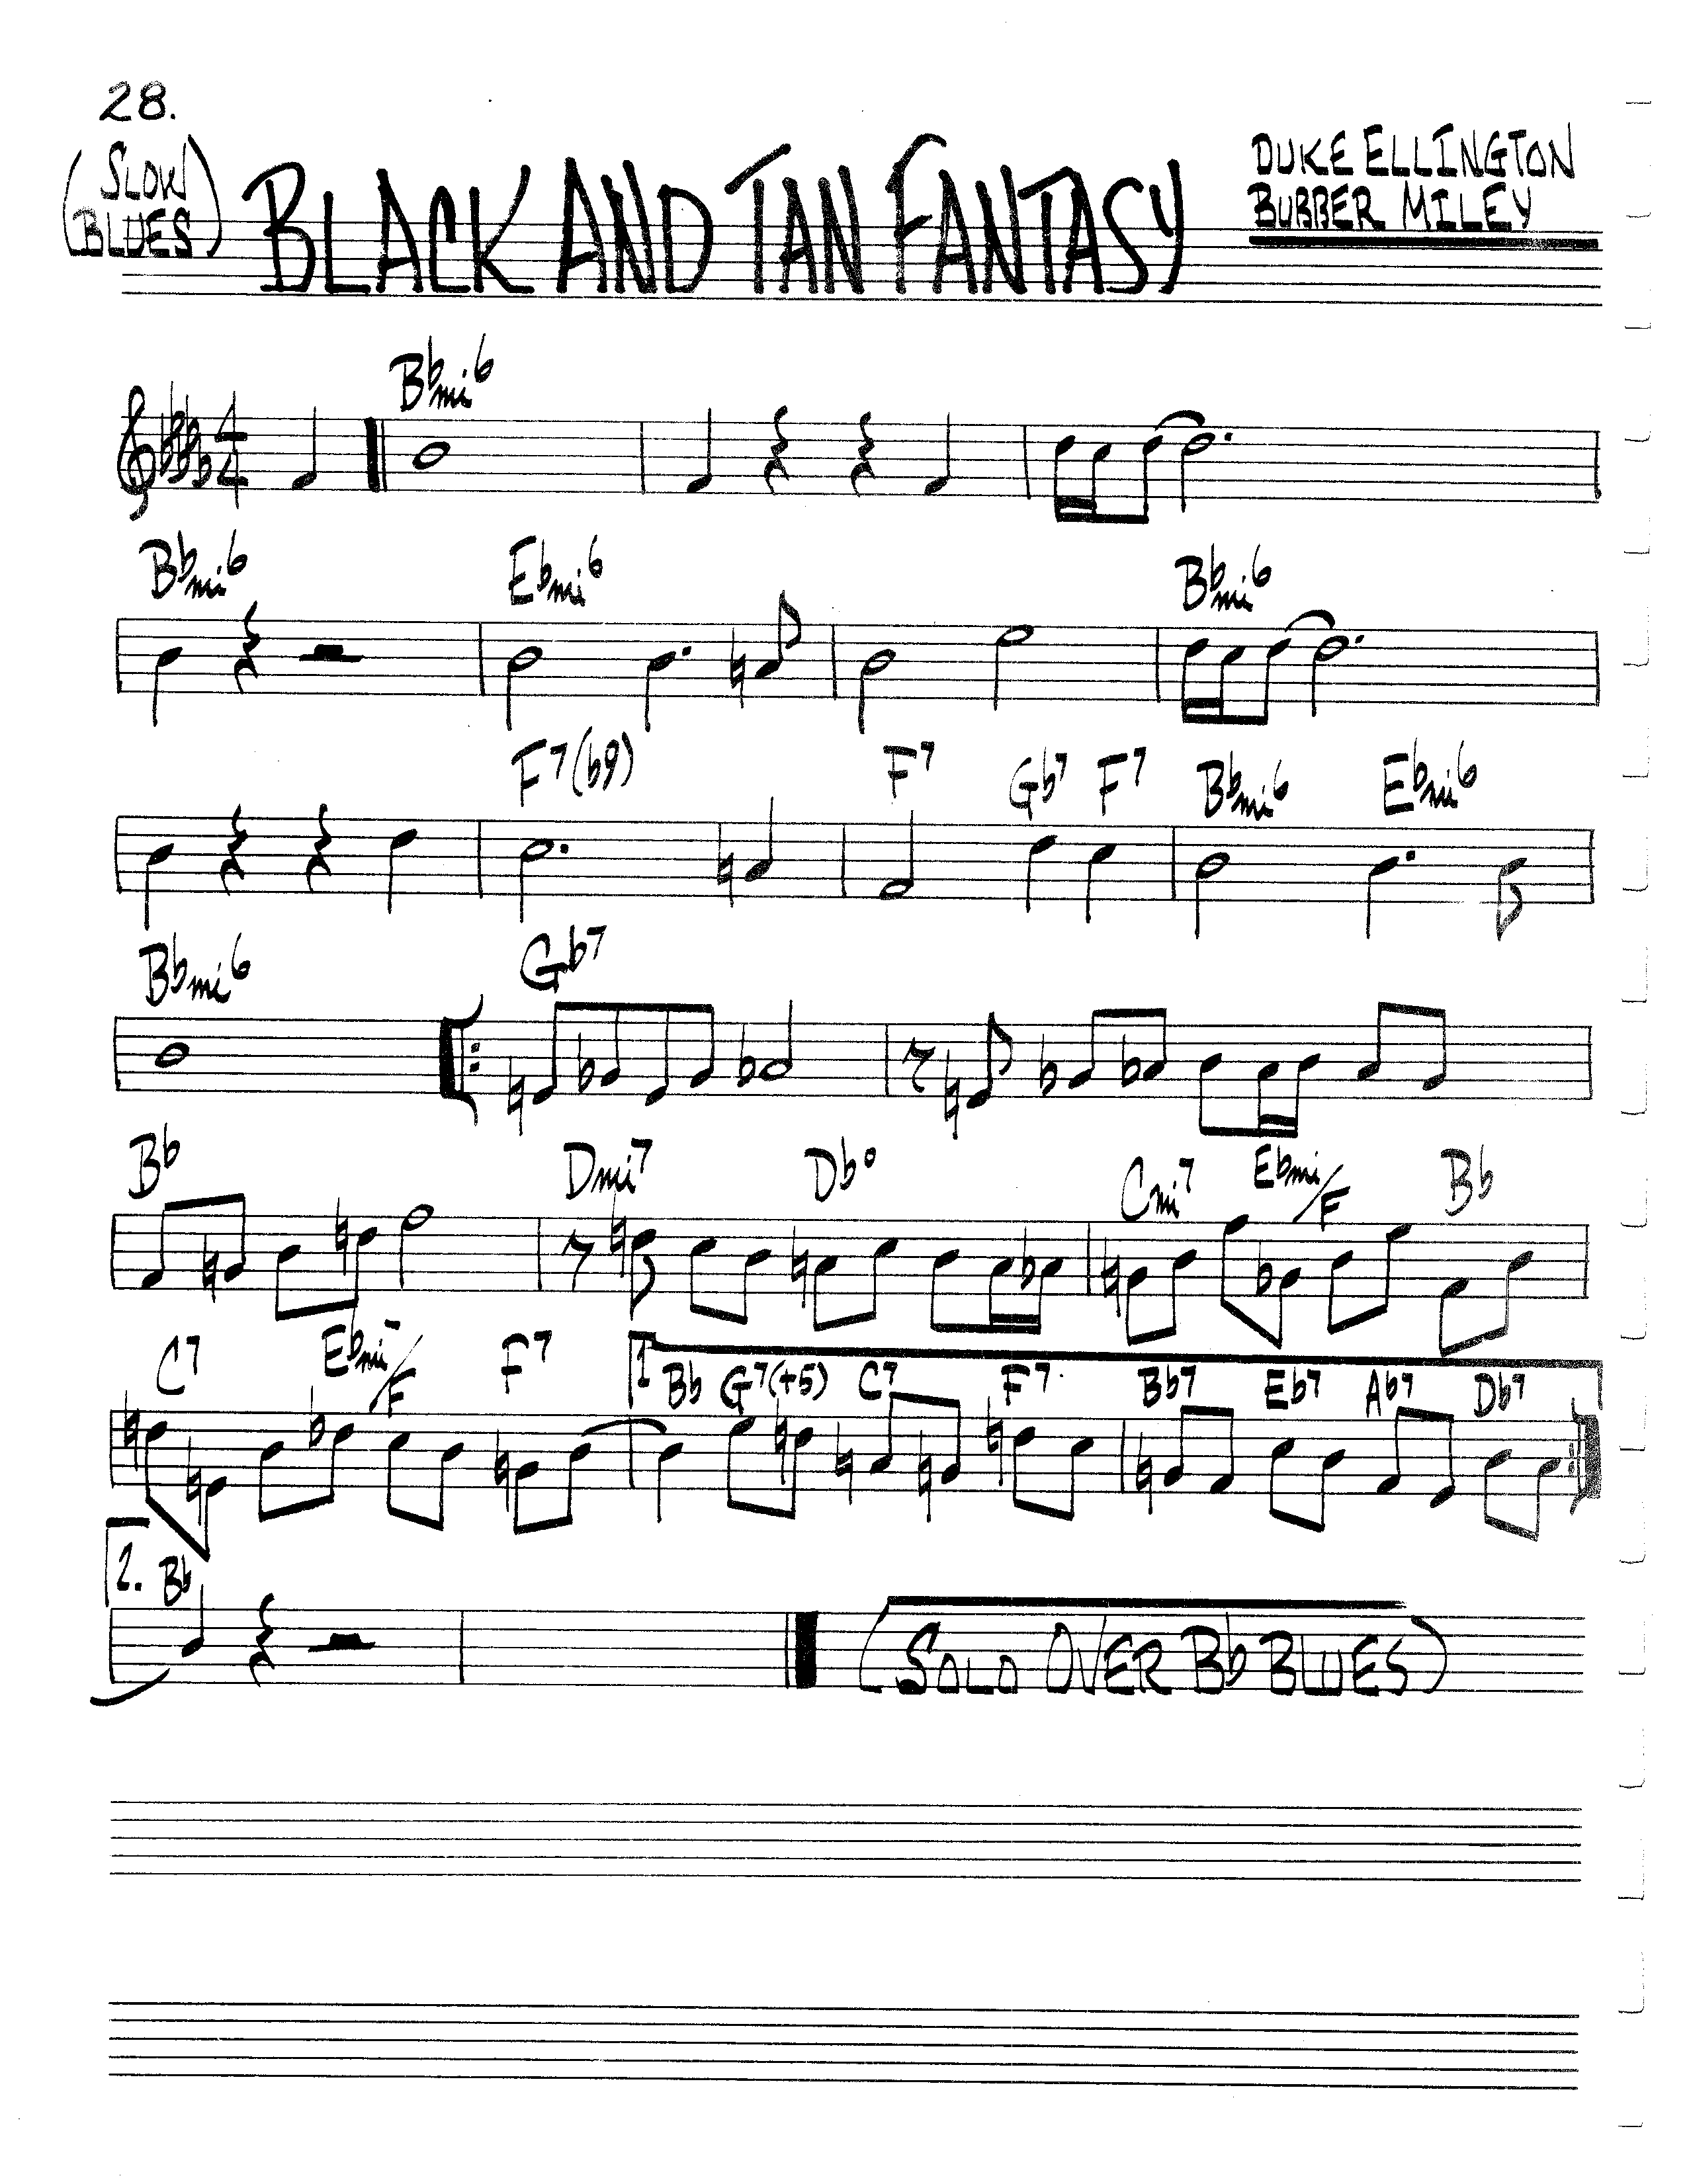 28.
(SLOW BLUES)
BLACK AND TAN FANTASY
DUKE ELLINGTON
BUBBER MILEY
4/4
Bbmi6
Bbmi6 Ebmi6 Bbmi6
F7(b9) F7 Gb7 F7 Bbmi6 Ebmi6
Bbmi6 Gb7
Bb Dmi7 Db° Cmi7 Ebmi/F Bb
C7 Ebmi/F F7 1. Bb G7(+5) C7 F7 Bb7 Eb7 Ab7 Db7
2. Bb
(SOLO OVER Bb BLUES)